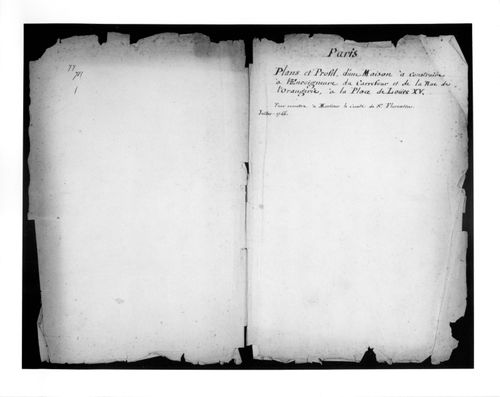 77
771
1
Paris
Plans et Profil, d'une Maison à Construire
à l'Encoignure du Carrefour et de la Rue de
l'Orangerie, à la Place de Louis XV.
Pour remettre à Monsieur le Comte de St. Florentin.
Juillet